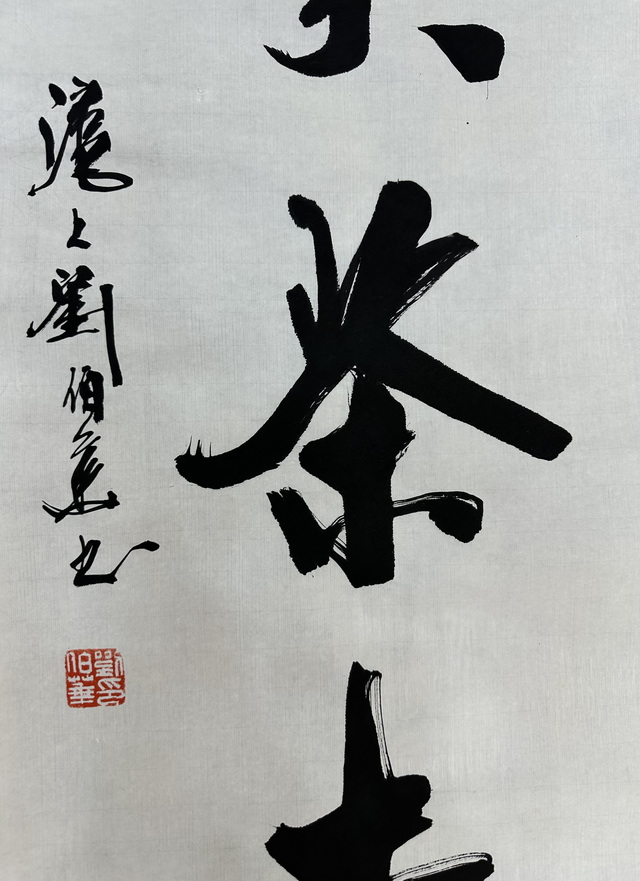 茶
滬上劉伯華書
劉印
伯華